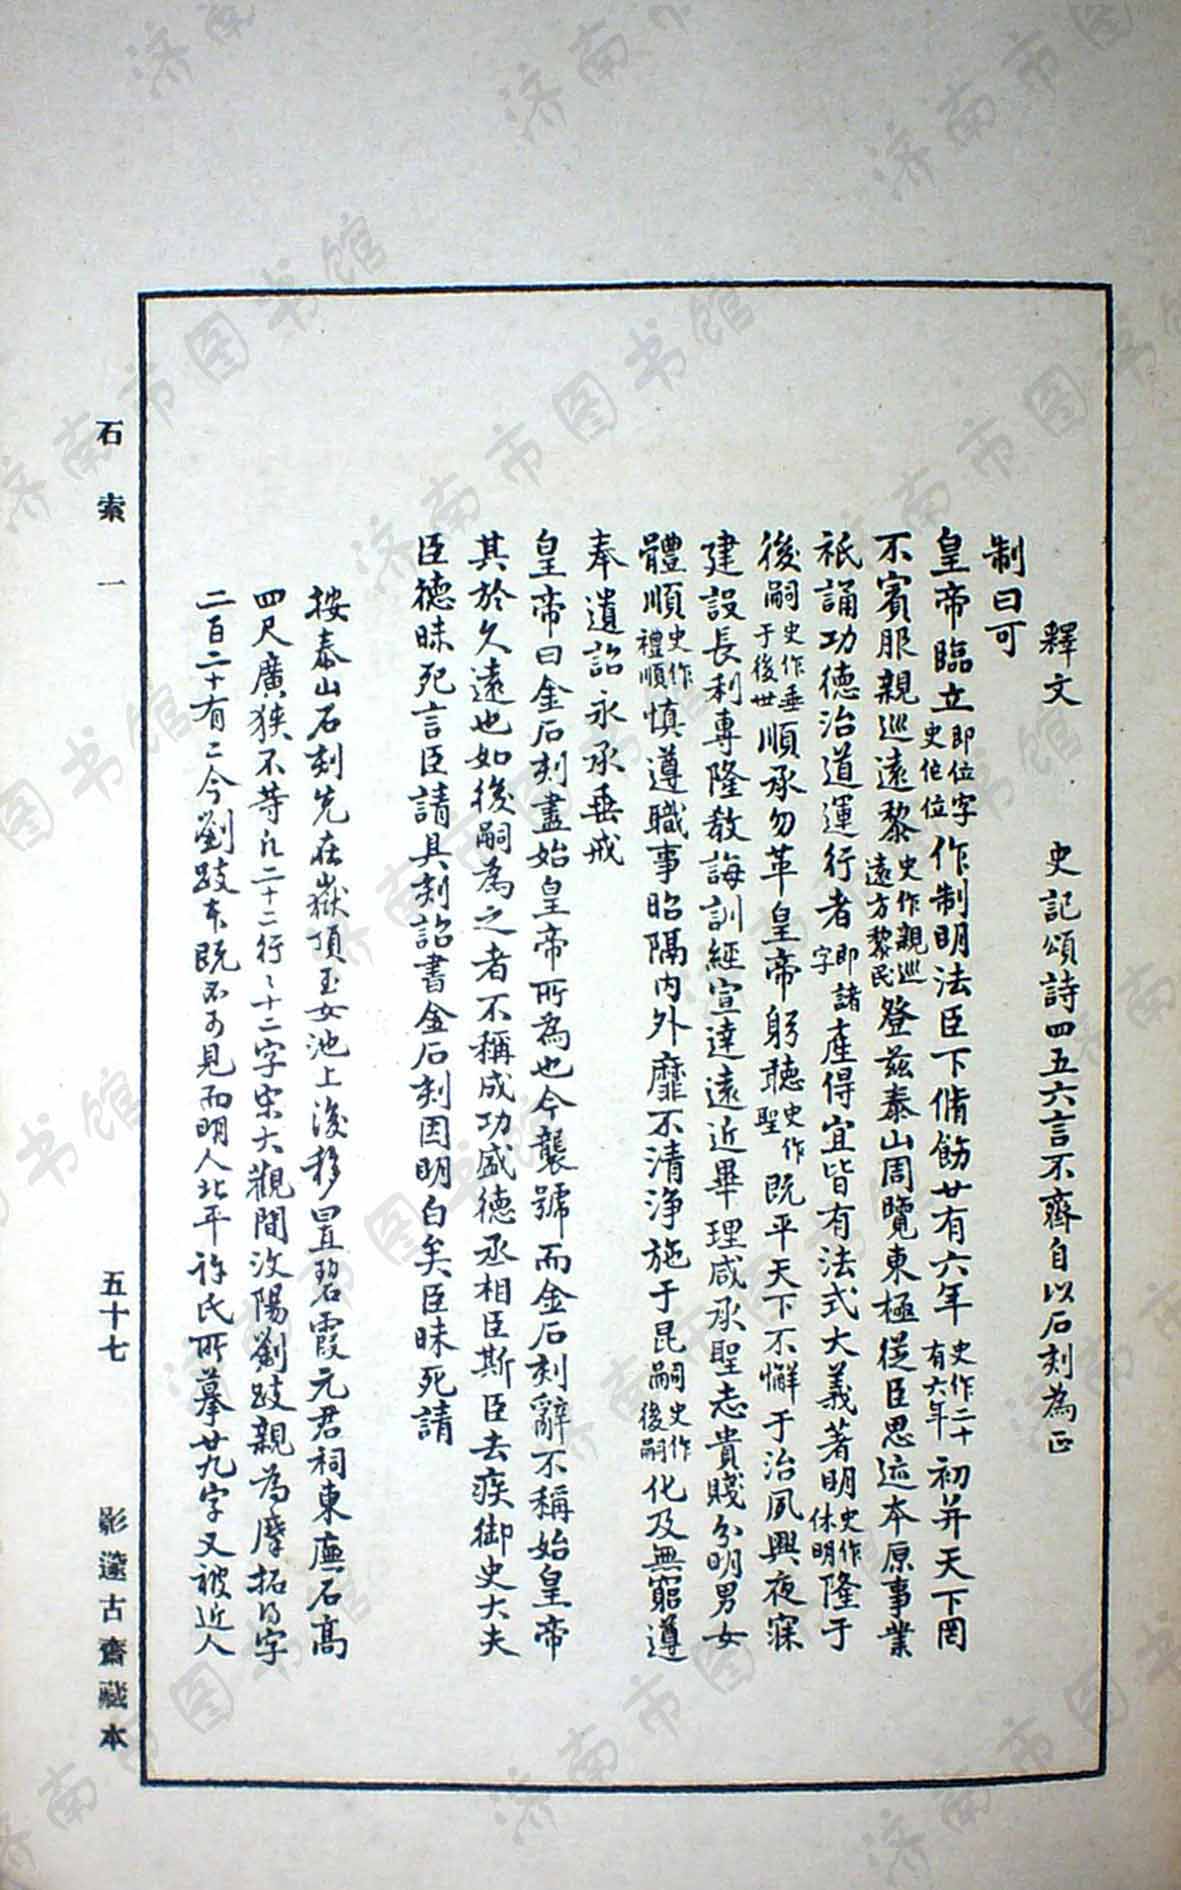 釋文 史記頌詩四五六言不齊自以石刻為正
制曰可
皇帝臨立即位字史作位作制明法臣下脩飭廿有六年史作二十有六年初并天下罔
不賓服親巡遠黎史作親巡遠方黎民登兹泰山周覽東極從臣思迹本原事業
祇誦功德治道運行者即諸字產得宜皆有法式大義著明史作休明隆于
後嗣史作垂于後世順承勿革皇帝躬聽史作聖既平天下不懈于治夙興夜寐
建設長利專隆教誨訓經宣達遠近畢理咸承聖志貴賤分明男女
體順史作禮順慎遵職事昭隔內外靡不清淨施于昆嗣史作後嗣化及無窮遵
奉遺詔永承垂戒
皇帝曰金石刻盡始皇帝所為也今襲號而金石刻辭不稱始皇帝
其於久遠也如後嗣為之者不稱成功盛德丞相臣斯臣去疾御史大夫
臣德昧死言臣請具刻詔書金石刻因明白矣臣昧死請
按泰山石刻先在嶽頂玉女池上後移置碧霞元君祠東廡石高
四尺廣狹不等凡二十二行〻十二字宋大觀間汶陽劉跂親為摩拓得字
二百二十有二今劉跂本既不可見而明人北平許氏所摹廿九字又被近人
石索一
五十七
影邃古齋藏本
济南市图书馆